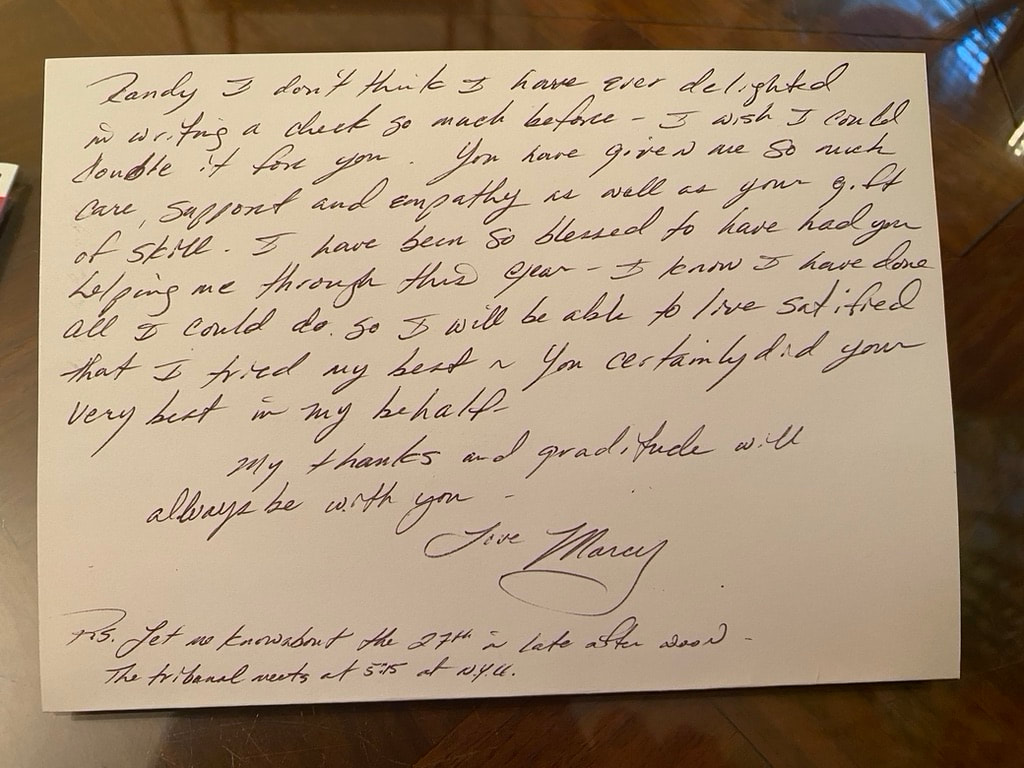 Randy I don't think I have ever delighted
in writing a check so much before - I wish I could
double it for you. You have given me so much
care, support and empathy as well as your gift
of skill. I have been so blessed to have had you
helping me through this year - I know I have done
all I could do. so I will be able to live satified
that I tried my best ~ You certainly did your
very best in my behalf -
My thanks and graditude will
always be with you -
Love Marcy
P.S. Let me know about the 27th in late after noon -
The tribanal meets at 5:15 at N.Y.U.